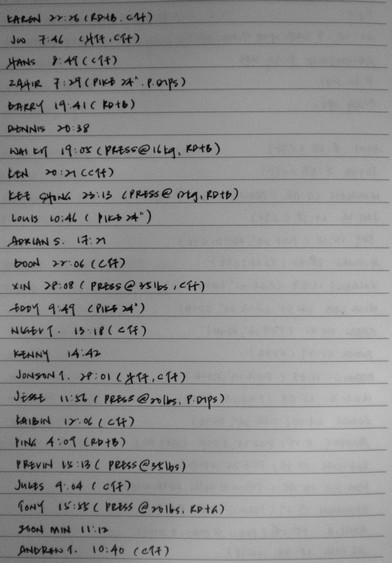 KAREN 22:26 (RD+B, CFT)
JOO 7:46 (CFT)
HANS 8:49 (CFT)
ZAHIR 7:29 (PIKE 24", P.DIPS)
BARRY 19:41 (RD+B)
DENNIS 20:38
WAI KIT 19:05 (PRESS@16kg, RD+B)
KEN 20:21 (CFT)
KEE CHONG 23:13 (PRESS@12kg, RD+B)
LOUIS 10:46 (PIKE 24")
ADRIAN S. 17:21
BOON 22:06 (CFT)
XIN 28:08 (PRESS@35lbs, CFT)
EDDY 9:49 (PIKE 24")
T. 13:18 (CFT)
KENNY 14:42
JONSON T. 28:01 (CFT)
JESSE 11:56 (PRESS@20lbs, P.DIPS)
KAIBIN 12:06 (CFT)
PING 4:09 (RD+B)
PREVIN 15:13 (PRESS@35lbs)
JULES 9:04 (CFT)
TONY 15:55 (PRESS@20lbs,
MIN 11:12
ANDREW T. 10:40 (CFT)